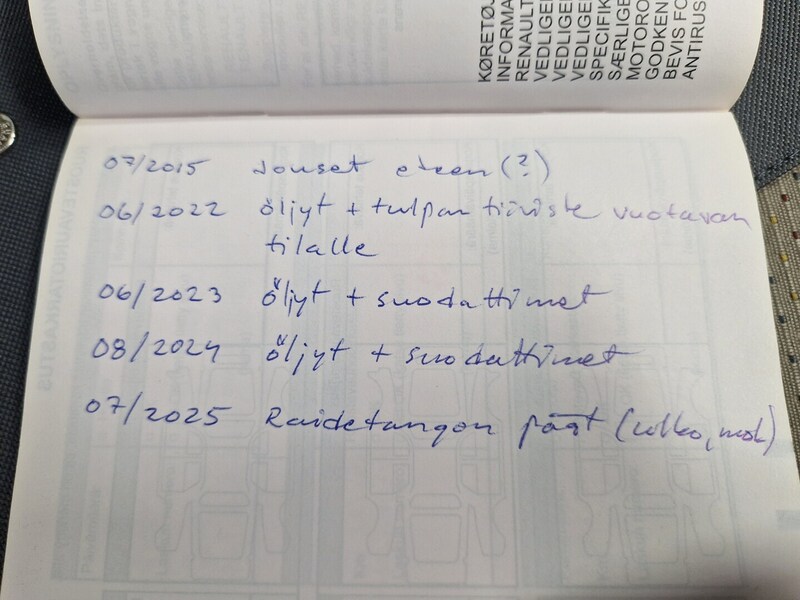 KØRETØJ
INFORMA
RENAULT
VEDLIGE
VEDLIGE
VEDLIGE
SPECIFIK
SÆRLIGE
MOTORO
GODKEN
BEVIS FO
ANTIRUS
07/2015 Jouset eteen (?)
06/2022 öljyt + tulpan tiiviste vuotavan
tilalle
06/2023 öljyt + suodattimet
08/2024 öljyt + suodattimet
07/2025 Raidetangon päät (ulko, mol)